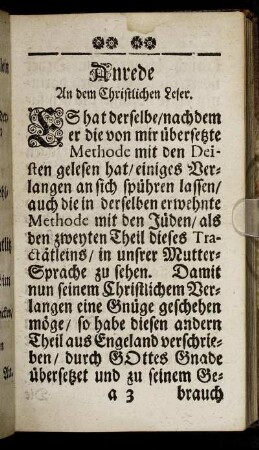 Anrede
An dem Christlichen Leser.
ES hat derselbe/nachdem
er die von mir übersetzte
Methode mit den Dei-
sten gelesen hat/ einiges Ver-
langen an sich spühren lassen/
auch die in derselben erwehnte
Methode mit den Jüden/ als
den zweyten Theil dieses Tra-
ctätleins/ in unsrer Mutter-
Sprache zu sehen. Damit
nun seinem Christlichem Ver-
langen eine Gnüge geschehen
möge/ so habe diesen andern
Theil aus Engeland verschrie-
ben/ durch GOttes Gnade
übersetzet und zu seinem Ge-
a 3 brauch